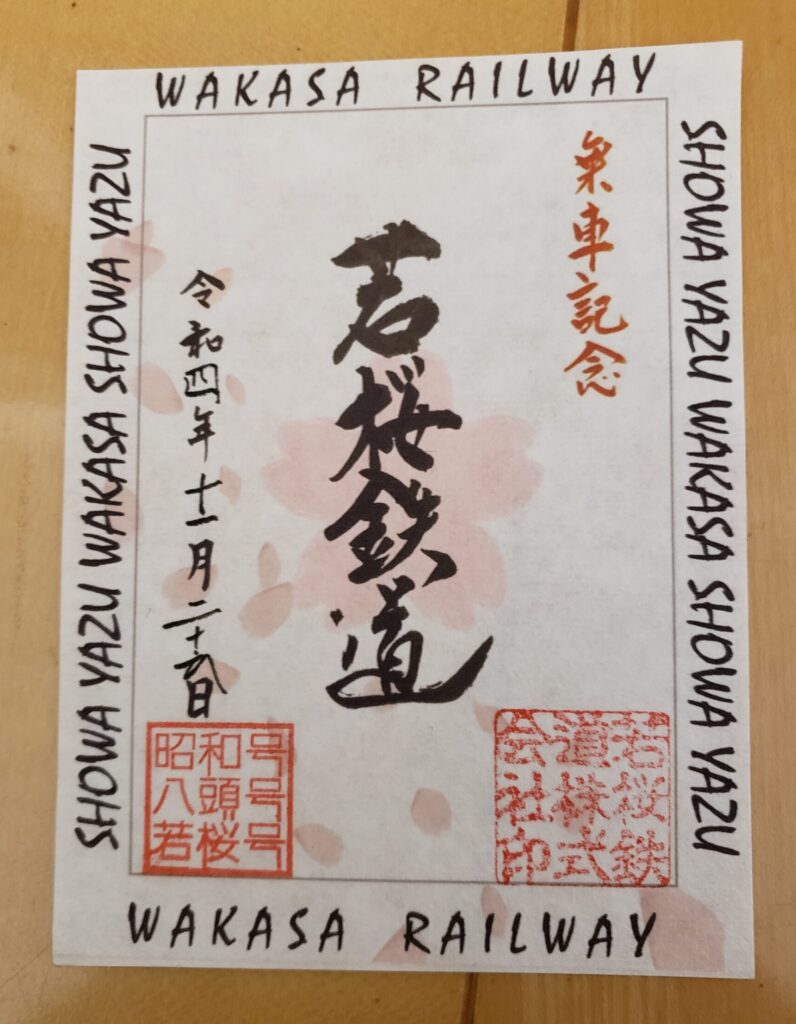 WAKASA RAILWAY
SHOWA YAZU WAKASA SHOWA YAZU
乗車記念
若桜鉄道
令和四年十一月二十六日
若桜鉄
道株式
会社印
昭和号
八頭号
若桜号
SHOWA YAZU WAKASA SHOWA YAZU
WAKASA RAILWAY